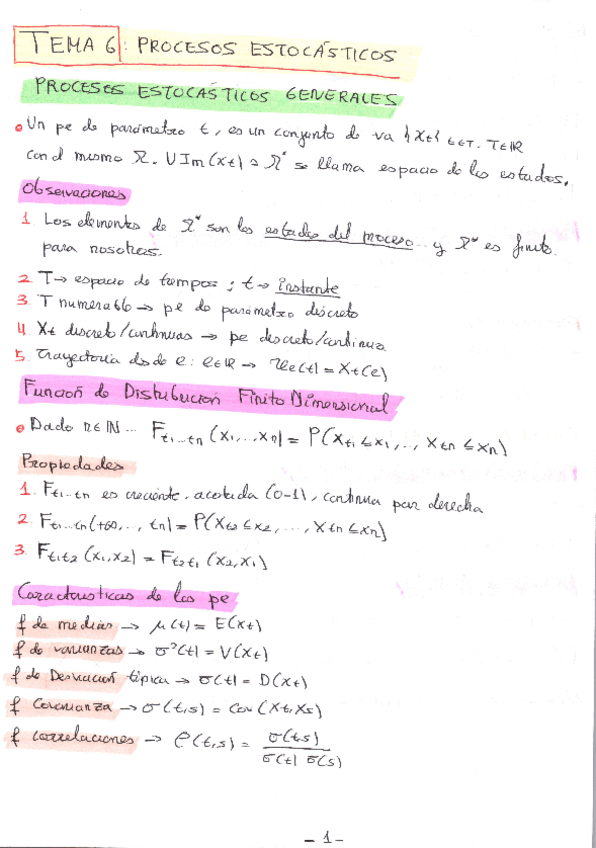 TEMA 6: PROCESOS ESTOCÁSTICOS
PROCESOS ESTOCÁSTICOS GENERALES
• Un pe de parámetro t, es un conjunto de va {Xt} t∈T. T∈ℝ
con el mismo Ω. U Im(xt) = Ω* se llama espacio de los estados.
Observaciones
1. Los elementos de Ω* son los estados del proceso y Ω* es finito.
para nosotros.
2. T → espacio de tiempos; t → instante
3. T numerable → pe de parámetro discreto
4. Xt discreto/continuas → pe discreto/continuo.
5. Trayectoria desde e: e∈ℝ → xe(t) = Xt(e)
Función de Distribución Finito Dimensional
• Dado n∈ℕ... Ft1...tn (x1,..,xn) = P(Xt1 ≤ x1,.., Xtn ≤ xn)
Propiedades
1. Ft1...tn es creciente, acotada (0-1), continua por derecha
2. Ft1...tn(+∞,.., tn) = P(Xt2 ≤ x2,..., Xtn ≤ xn)
3. Ft1t2 (x1,x2) = Ft2t1 (x2,x1)
Características de los pe
f de medias → μ(t) = E(Xt)
f de varianzas → σ²(t) = V(Xt)
f de Desviación típica → σ(t) = D(Xt)
f Covarianza → σ(t,s) = Cov(Xt,Xs)
f correlaciones → ρ(t,s) = σ(t,s) / σ(t) σ(s)
- 1 -